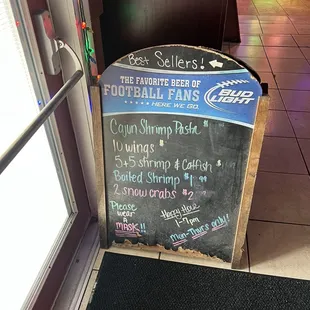 Best Sellers!
THE FAVORITE BEER OF
FOOTBALL FANS
HERE WE GO.
BUD LIGHT
Cajun Shrimp Pasta $
10 wings $
5+5 shrimp & Catfish $
Boiled Shrimp $1.99
2 snow crabs $2
Please
wear
a
MASK!!
Happy Hour
1-7pm
Mon-Thurs only!!